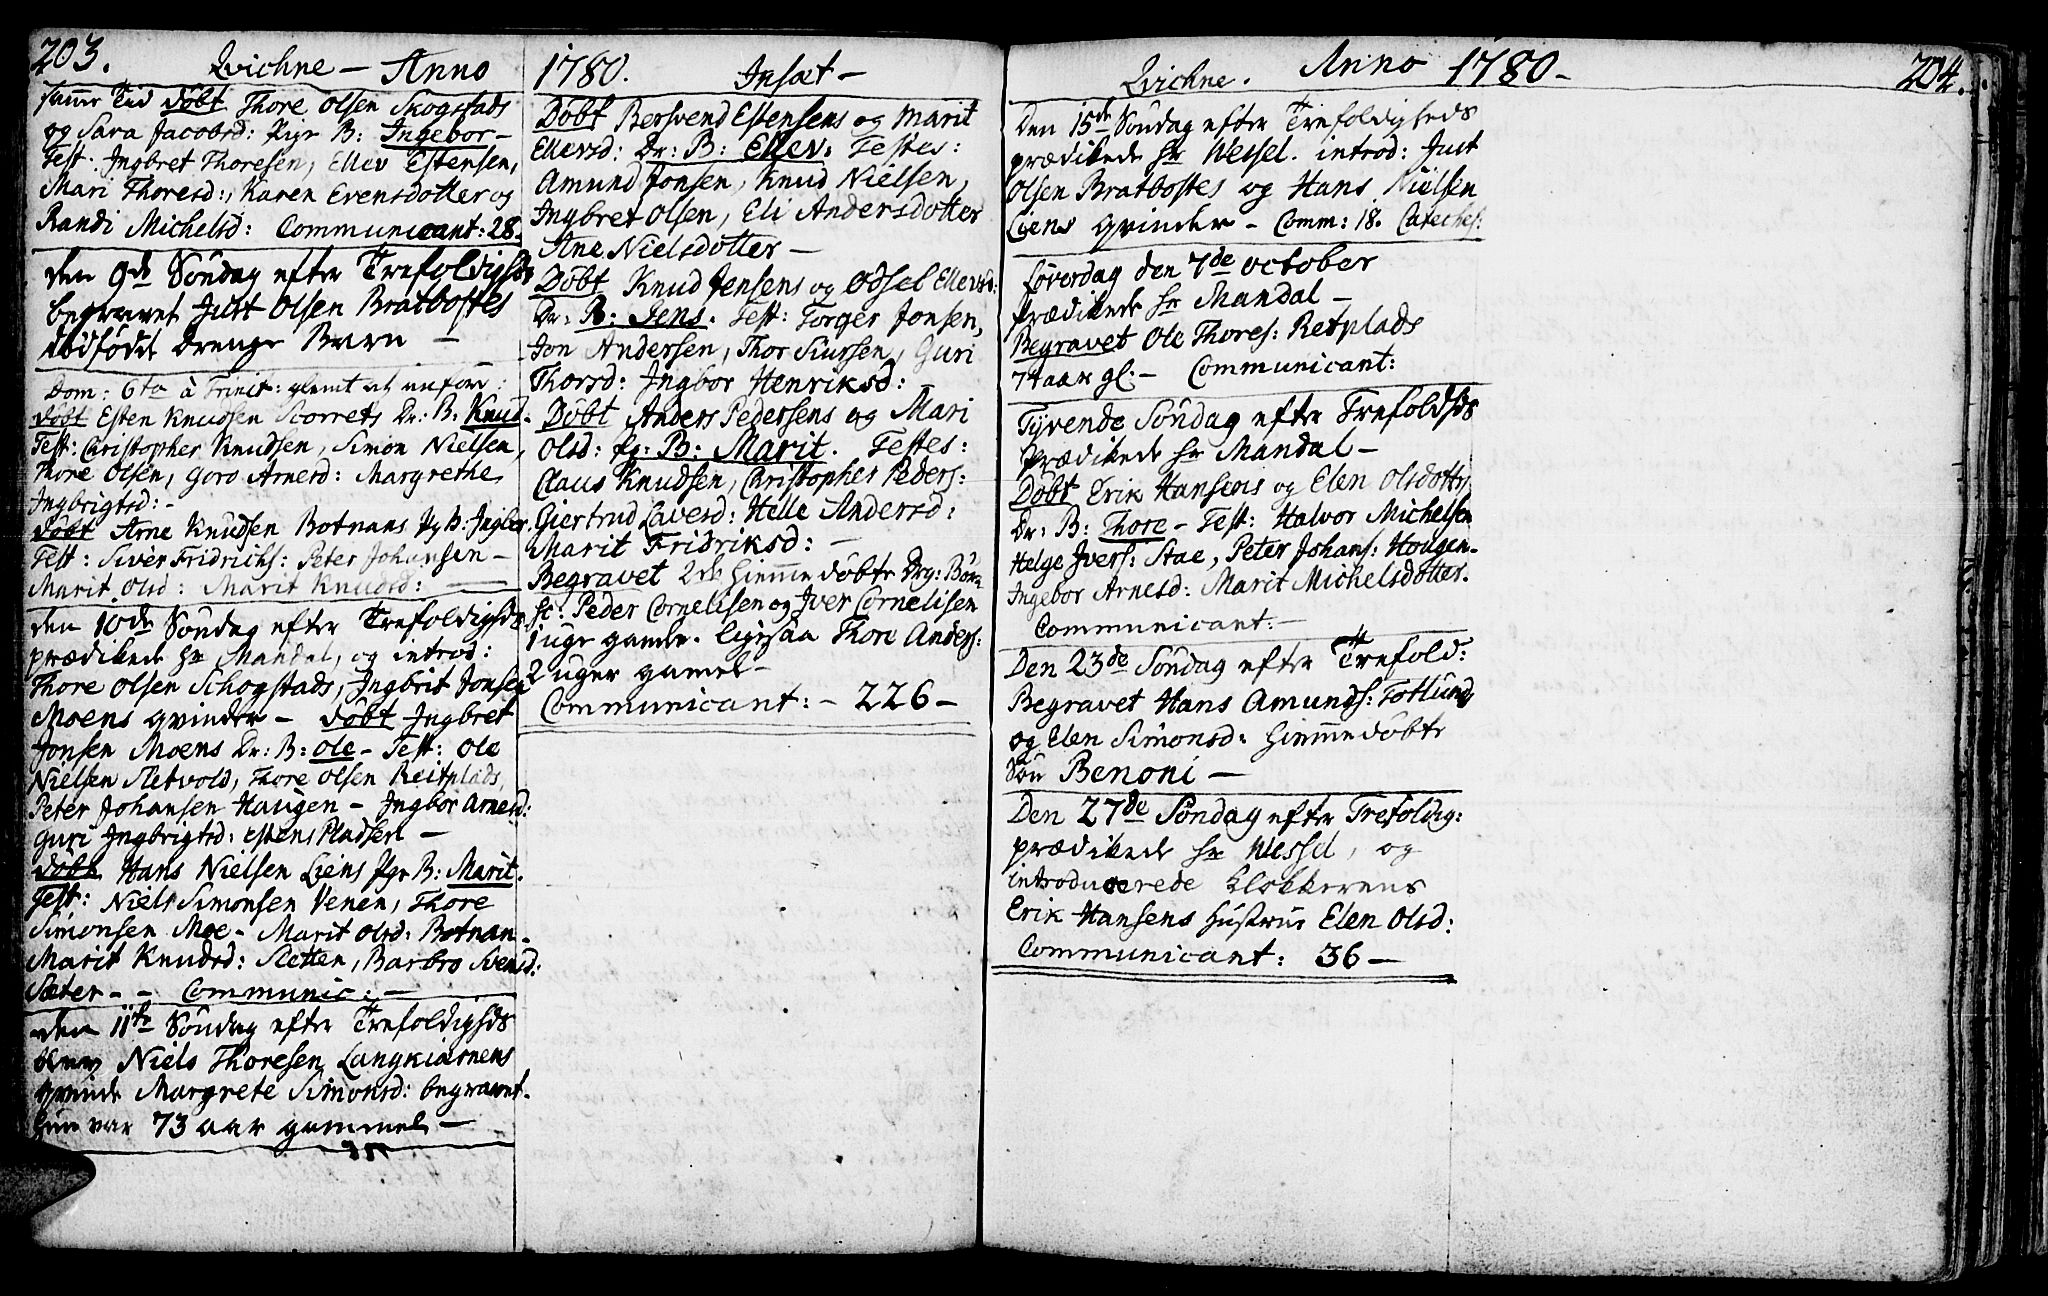 203. Qvichne – Anno
samme Tid døbt Thore Olsen Skogstads
og Sara Jacobsd: Pige B: Ingebor –
Test: Ingbret Thoresen, Ellev Estensen,
Mari Thoresd:, Karen Evensdotter og
Randi Michelsd: Communicant: 28.
den 9de Søndag efter Trefoldighds
begravet Just Olsen Bratbostes
dødfødde Drenge Barn –
Dom: 6ta à Trinit: glemt at anføre:
døbt Esten Knudsen Scorrets Dr: B: Knud.
Test: Christopher Knudsen, Simon Nielsen,
Thore Olsen, Goro Arnesd: Margrethe
Ingbrigtsd: –
døbt Arne Knudsen Botnans Pg B: Ingbor.
Test: Siver Fridrichs: Peter Johansen –
Marit Olsd: Marit Knudsd: –
den 10de Søndag efter Trefoldighds
prædikede Hr Mandal, og introd:
Thore Olsen Schogstads, Ingbrit Jonsen
Moens qvinder – døbt Ingbret
Jonsen Moens Dr: B: Ole – Test: Ole
Nielsen Sletvold, Thore Olsen Reitplads,
Peter Johansen Haugen – Ingbor Arnesd:
Guri Ingbrigtsd: Estens Pladsen –
døbt Hans Nielsen Liens Pge B: Marit.
Test: Niels Simonsen Venen, Thore
Simonsen Moe – Marit Olsd: Botnan –
Marit Knudsd: Sletten, Barbro Svensd:
Sæter – – Communic: –
den 11te Søndag efter Trefoldighds
blev Niels Thoresen Langkiærnens
qvinde Margrete Simonsd: begravet.
hun var 73 aar gammel –
1780. Insæt –
Døbt Bersvend Estensens og Marit
Ellevsd: Dr: B: Ellev. Testes:
Amund Jonsen, Knud Nielsen,
Ingbret Olsen, Eli Andersdotter
Ane Nielsdotter –
Døbt Knud Jensens og Odsel Ellevsd:
Dr: B: Jens. Test: Torger Jonsen,
Jon Andersen, Thor Siursen, Guri
Thorsd: Ingbor Henriksd:
Døbt Anders Pedersens og Mari
Olsd: Pg: B: Marit. Testes:
Claus Knudsen, Christopher Peders:
Giertrud Laversd: Helle Andersd:
Marit Fridriksd: –
Begravet 2de hiemme døbte Drg: Børn
sc: Peder Cornelisen og Iver Cornelisen
1 uge gamle. ligesaa Thore Anders:
2 uger gamel –
Communicant: – 226 –
Qvichne. Anno 1780 – 204.
Den 15de Søndag efter Trefoldigheds
prædikede Hr Wessel. introd: Just
Olsen Bratbostes og Hans Nielsen
Liens qvinder – Comm: 18. Cateches:
Løverdag den 7de October
prædikede Hr Mandal –
Begravet Ole Thores: Retplads
74 aar gl. – Communicant:
Tyvende Søndag efter Trefoldhds
prædikede Hr Mandal –
Døbt Erik Hansens og Elen Olsdotters
Dr: B: Thore – Test: Halvor Michelsen
Helge Ivers: Stae, Peter Johans: Hougen –
Ingebor Arnesd: Marit Michelsdotter.
Communicant: –
Den 23de Søndag efter Trefold:
Begravet Hans Amunds: Totlund
og Elen Simonsd: hiemmedøbte
Søn Benoni –
Den 27de Søndag efter Trefoldig:
prædikede Hr Wessel, og
introducerede Klokkerens
Erik Hansens Hustrue Elen Olsd:
Communicant: 36 –